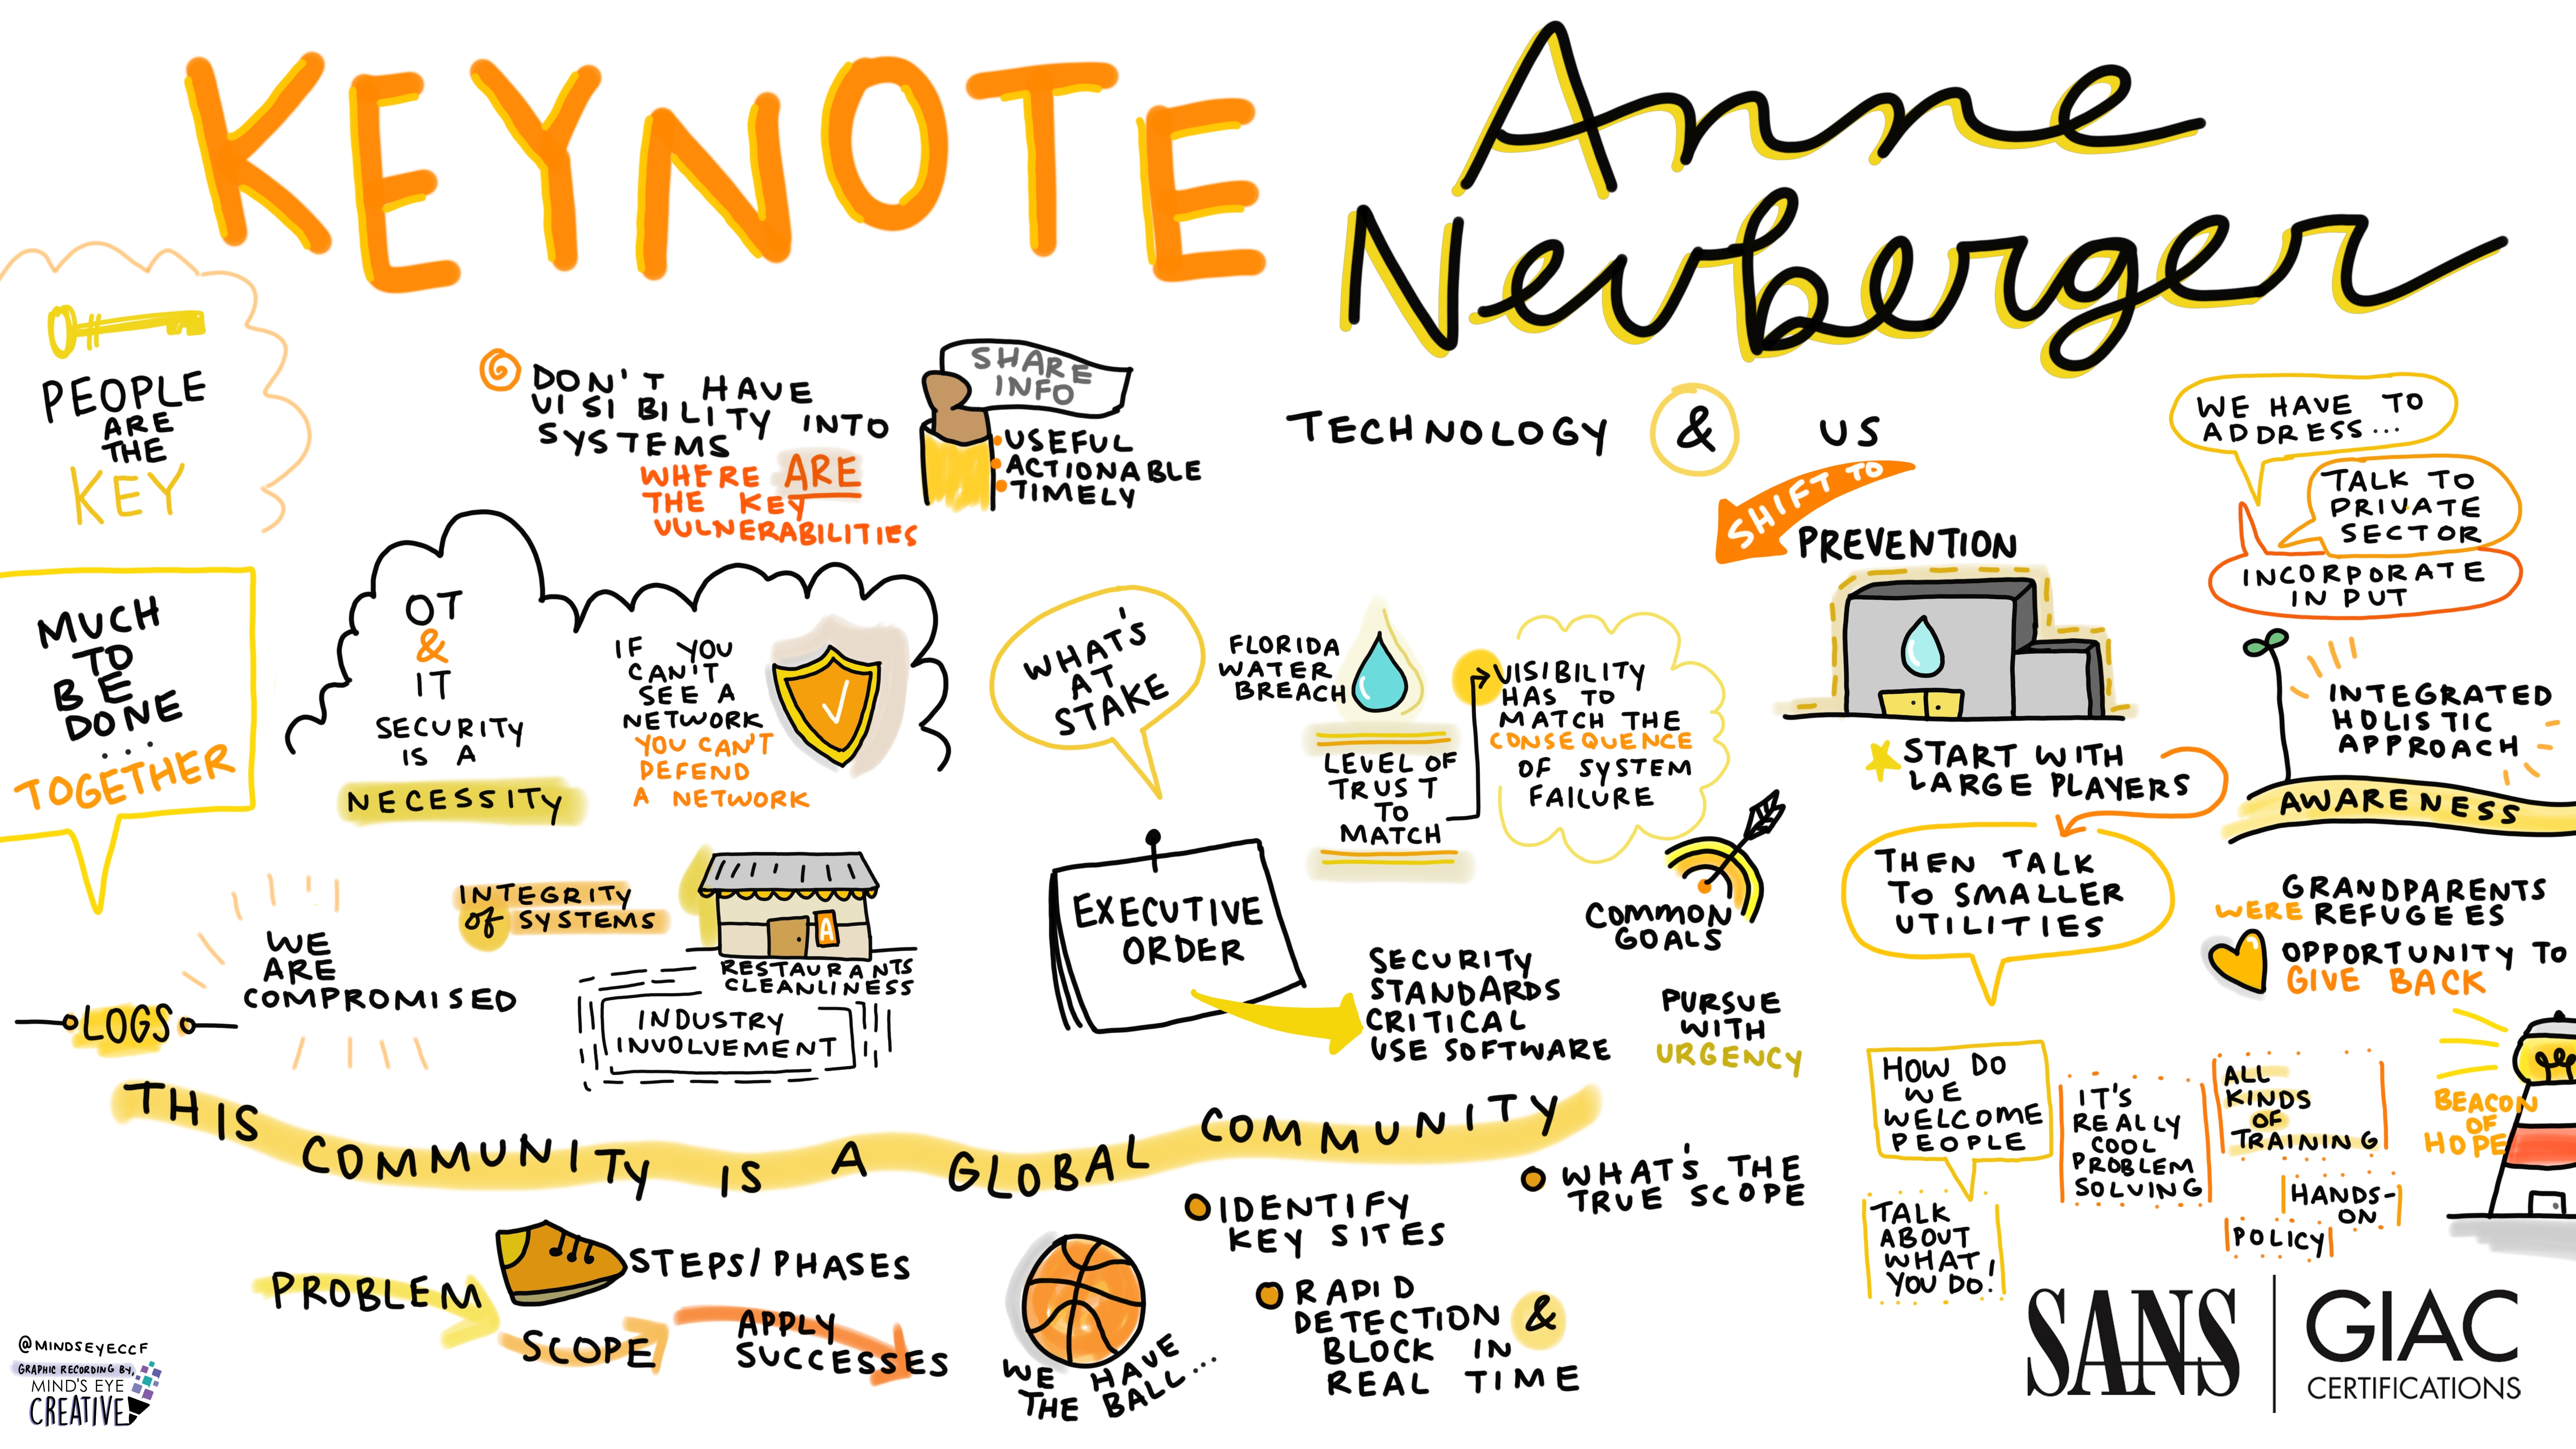 KEYNOTE
Anne
Neuberger
PEOPLE
ARE
THE
KEY
DON'T HAVE
VISIBILITY INTO
SYSTEMS
WHERE ARE
THE KEY
VULNERABILITIES
SHARE
INFO
USEFUL
ACTIONABLE
TIMELY
TECHNOLOGY & US
SHIFT TO
PREVENTION
WE HAVE TO
ADDRESS...
TALK TO
PRIVATE
SECTOR
INCORPORATE
INPUT
MUCH
TO
BE
DONE
...
TOGETHER
OT
&
IT
SECURITY
IS A
NECESSITY
IF YOU
CAN'T
SEE A
NETWORK
YOU CAN'T
DEFEND
A NETWORK
WHAT'S
AT
STAKE
FLORIDA
WATER
BREACH
LEVEL OF
TRUST
TO
MATCH
VISIBILITY
HAS TO
MATCH THE
CONSEQUENCE
OF SYSTEM
FAILURE
START WITH
LARGE PLAYERS
THEN TALK
TO SMALLER
UTILITIES
INTEGRATED
HOLISTIC
APPROACH
AWARENESS
GRANDPARENTS
WERE REFUGEES
OPPORTUNITY TO
GIVE BACK
LOGS
WE
ARE
COMPROMISED
INTEGRITY
of SYSTEMS
A
RESTAURANTS
CLEANLINESS
INDUSTRY
INVOLVEMENT
EXECUTIVE
ORDER
SECURITY
STANDARDS
CRITICAL
USE SOFTWARE
COMMON
GOALS
PURSUE
WITH
URGENCY
HOW DO
WE
WELCOME
PEOPLE
TALK
ABOUT
WHAT
YOU DO!
IT'S
REALLY
COOL
PROBLEM
SOLVING
ALL
KINDS
OF
TRAINING
HANDS-
ON
POLICY
BEACON
OF
HOPE
THIS COMMUNITY IS A GLOBAL COMMUNITY
PROBLEM
STEPS/PHASES
SCOPE
APPLY
SUCCESSES
WE HAVE
THE BALL...
IDENTIFY
KEY SITES
WHAT'S THE
TRUE SCOPE
RAPID
DETECTION &
BLOCK IN
REAL TIME
@MINDSEYECCF
GRAPHIC RECORDING BY,
MIND'S EYE
CREATIVE
SANS
GIAC
CERTIFICATIONS